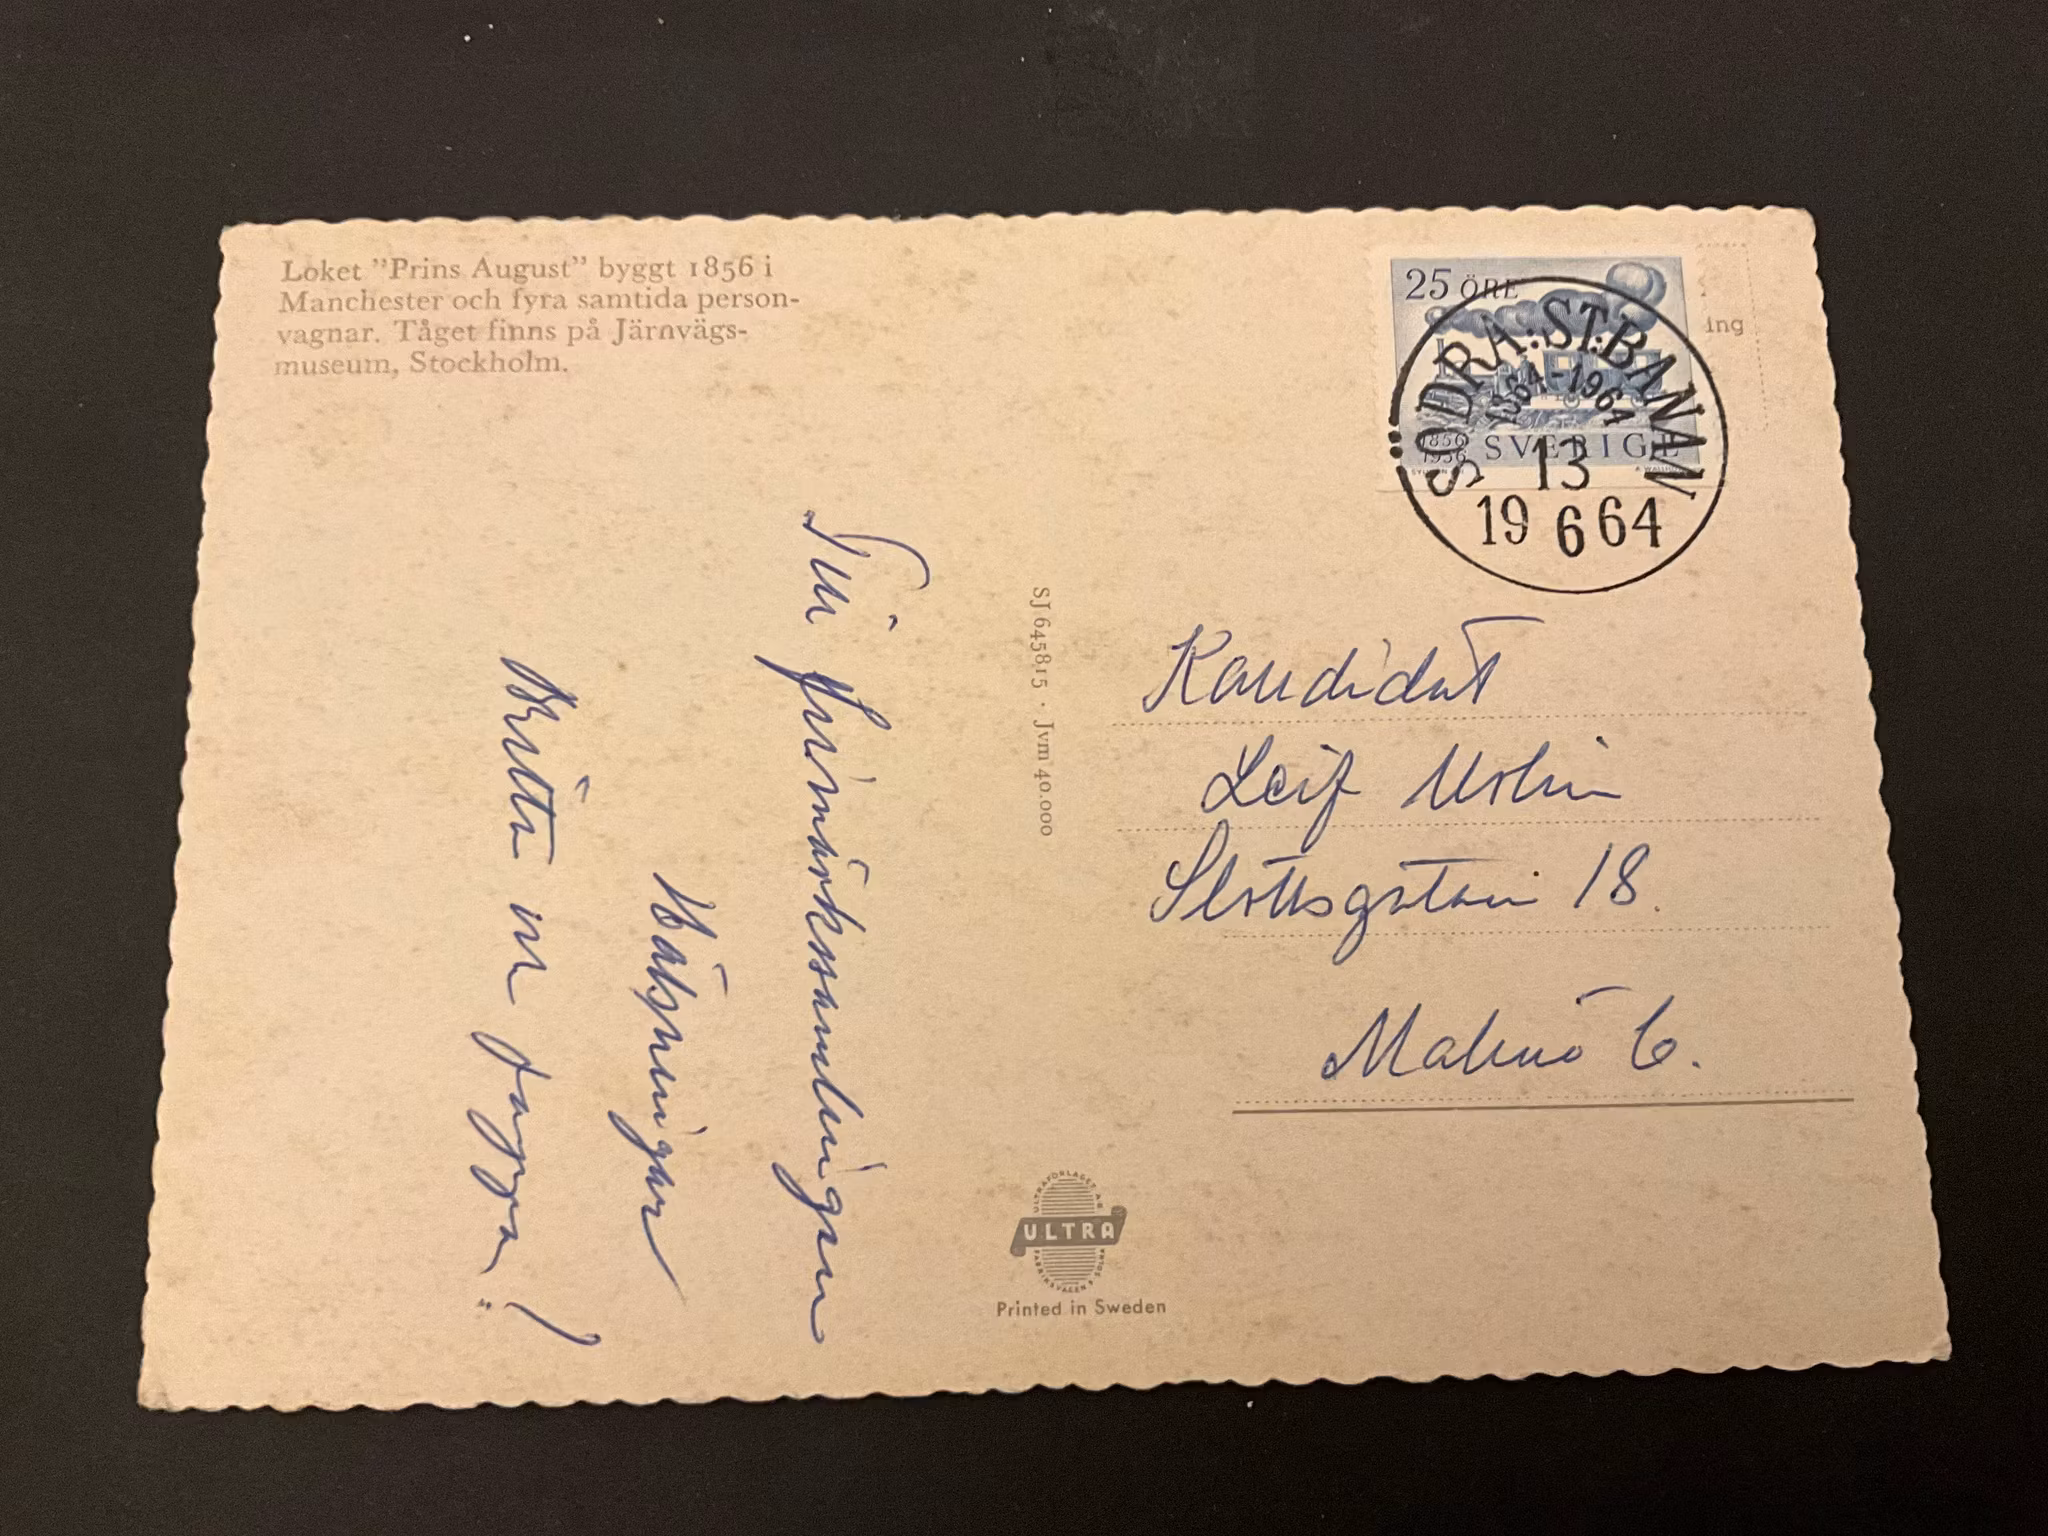 Loket "Prins August" byggt 1856 i
Manchester och fyra samtida person-
vagnar. Tåget finns på Järnvägs-
museum, Stockholm.
25 ÖRE
1856
1956
SVERIGE
SÖDRA:ST:BANAN
1864-1964
13
19 6 64
ing
Till frimärkssamlingen
Hälsningar
Britta m pappa!
SJ 645815 · Jvm 40.000
Kandidat
Leif
Slottsgatan 18.
Malmö C.
ULTRAFÖRLAGET A.B.
ULTRA
FABRIKSVÄGEN 8 SOLNA
Printed in Sweden